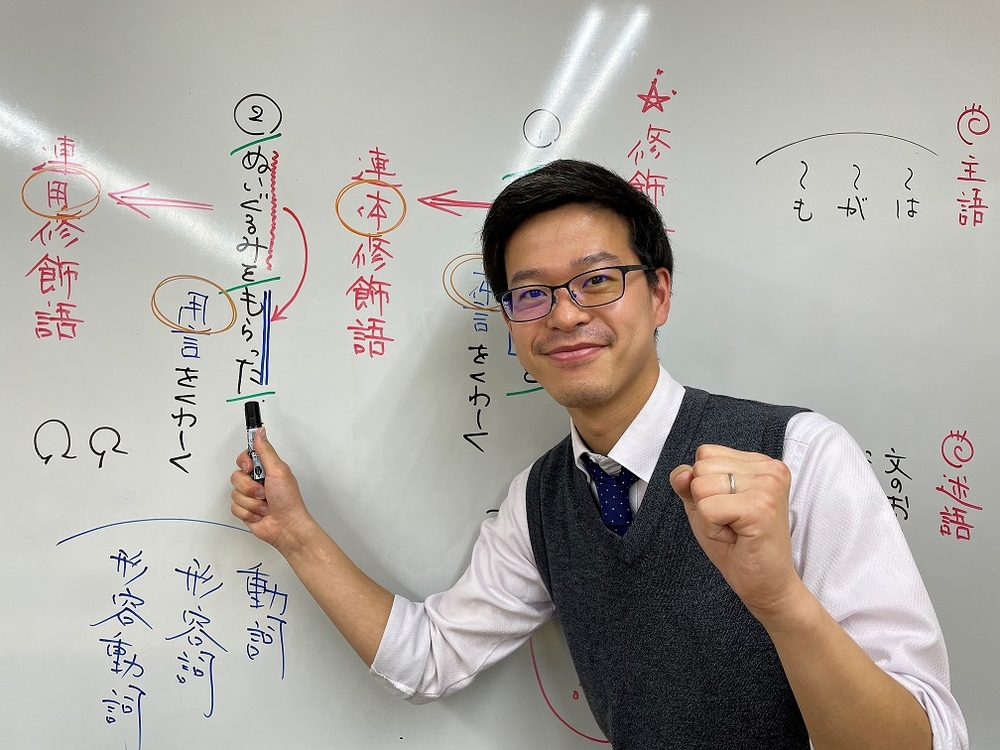 主語
〜は
〜が
〜も
述語
文のお
☆修飾
①
体言をくわーく
連体修飾語
②
ぬいぐるみをもらった
用言をくわーく
連用修飾語
動詞
形容詞
形容動詞